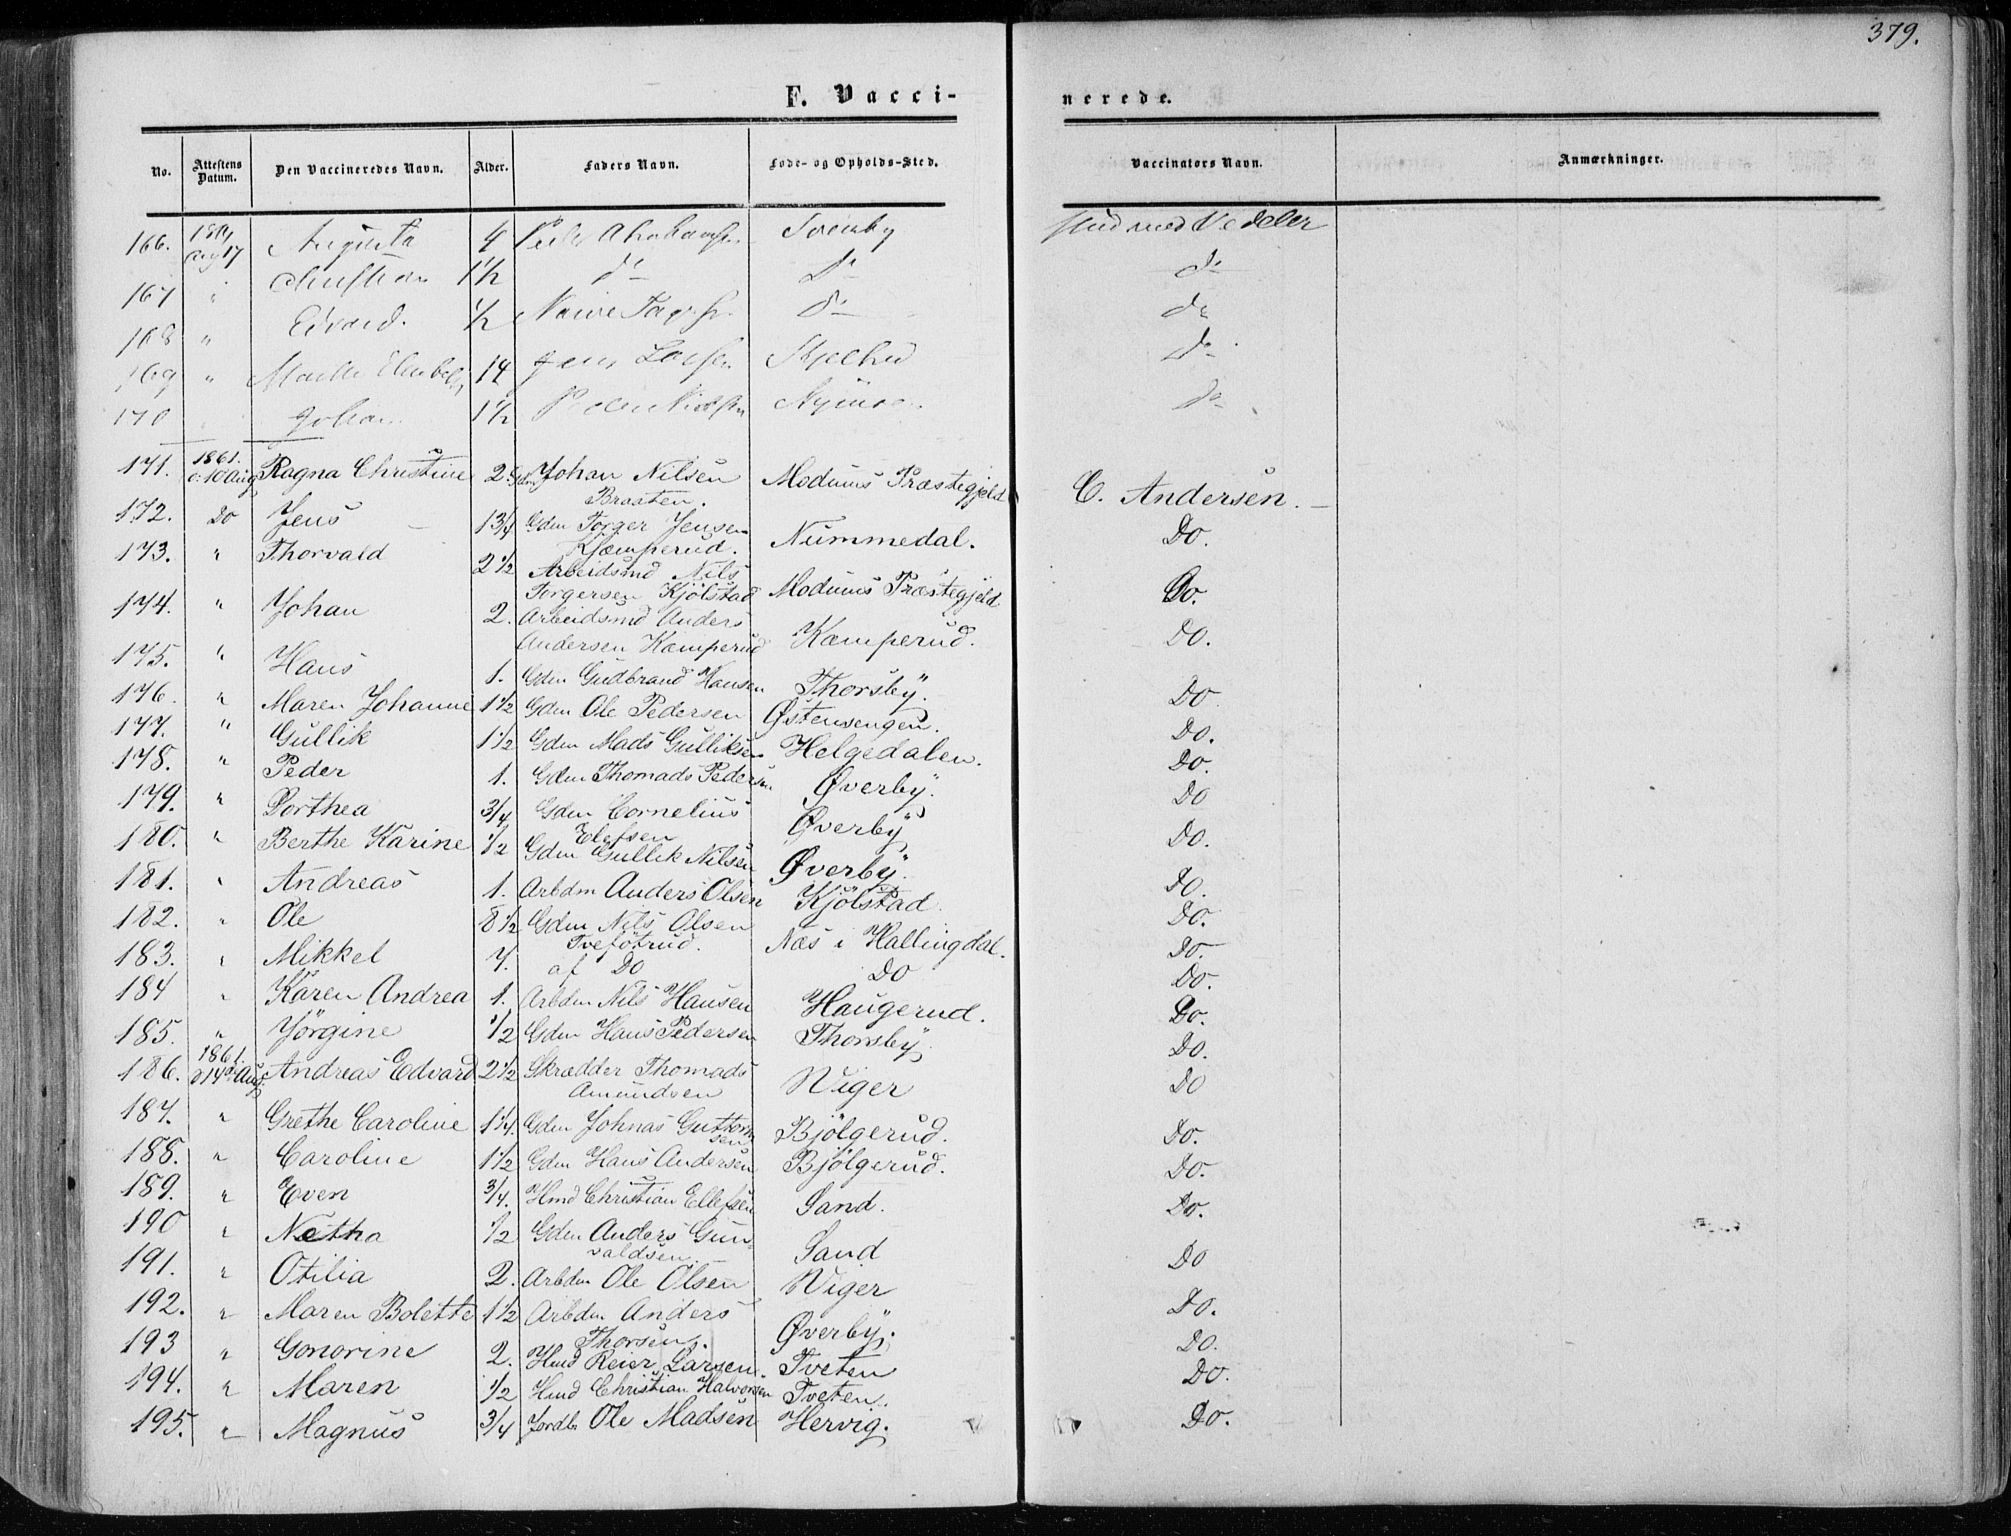 379.
F. Vacci-
nerede.
No. Attestens Datum. Den Vaccineredes Navn. Alder. Faders Navn. Føde- og Opholds-Sted. Vaccinators Navn. Anmærkninger.
166. Aug 17 Augusta 4 Peder Abrahamsen stud med Vedeler
167 " Christian 1½ do do do
168 " Edvard. ½ do do
169 " 14 Jens Larsen do
170 Johan 1½ do
171. 1861. d: 10 Aug Ragna Christine 2. Gdm Johan Nilsen Modums Præstegjeld C. Andersen.
Braaten.
172. Do Jens 1¾ Gdm Torger Jensen Nummedal. Do.
Kjæmperud.
173. " Thorvald 2½ Arbeidsmd Nils Modums Præstegjeld Do.
Torgersen Kjölstad
174. " Johan 2. Arbeidsmd Anders Kamperud. Do.
Andersen Kamperud
175. " Hans 1. Gdm Gudbrand Hansen Thorsby. Do
176. " Maren Johanne 1½ Gdm Ole Pedersen Østensengen. Do.
177. " Gullik 1½ Gdm Mads Gulliksen Helgedalen. Do.
178. " Peder 1. Gdm Thomads Pedersen Øverby. Do
179. " Dorthea ¾ Gdm Cornelius Øverby Do.
Elefsen
180. " Berthe Karine ½ Gdm Gullik Nilsen Øverby. Do.
181. " Andreas 1. Arbdm Anders Olsen Kjölstad. Do.
182. " Ole 8½ Gdm Nils Olsen Næs i Hallingdal. Do.
Tvefötrud.
183. " Mikkel 7. af Do Do Do.
184 " Karen Andrea 1. Arbdm Nils Hansen Haugerud. Do.
185. " Jörgine ½ Gdm Hans Pedersen Thorsby Do.
186. 1861. d 14de Aug. Andreas Edvard 2½ Skrædder Thomads Viger Do
Amundsen
187. " Grethe Caroline 1¼. Gdm Johnas Guttorm Bjölgerud. Do.
sen
188. " Caroline 1½ Gdm Hans Andersen Bjölgerud. Do.
189. " Even ¾. Hmd Christian Ellefsen Sand. Do.
190 " Netha ½ Gdm Anders Gun- Sand Do
valdsen
191. " Otilia 2. Arbdm Ole Olsen Viger Do.
192. " Maren Bolette 1½ Arbdm Anders Øverby. Do.
Thorsen.
193 " Gonorine 2. Hmd Reier Larsen. Tveten Do.
194. " Maren ½ Hmd Christian Halvorsen Tveten. Do.
195. " Magnus ¾ Jordbr Ole Madsen Hervig.